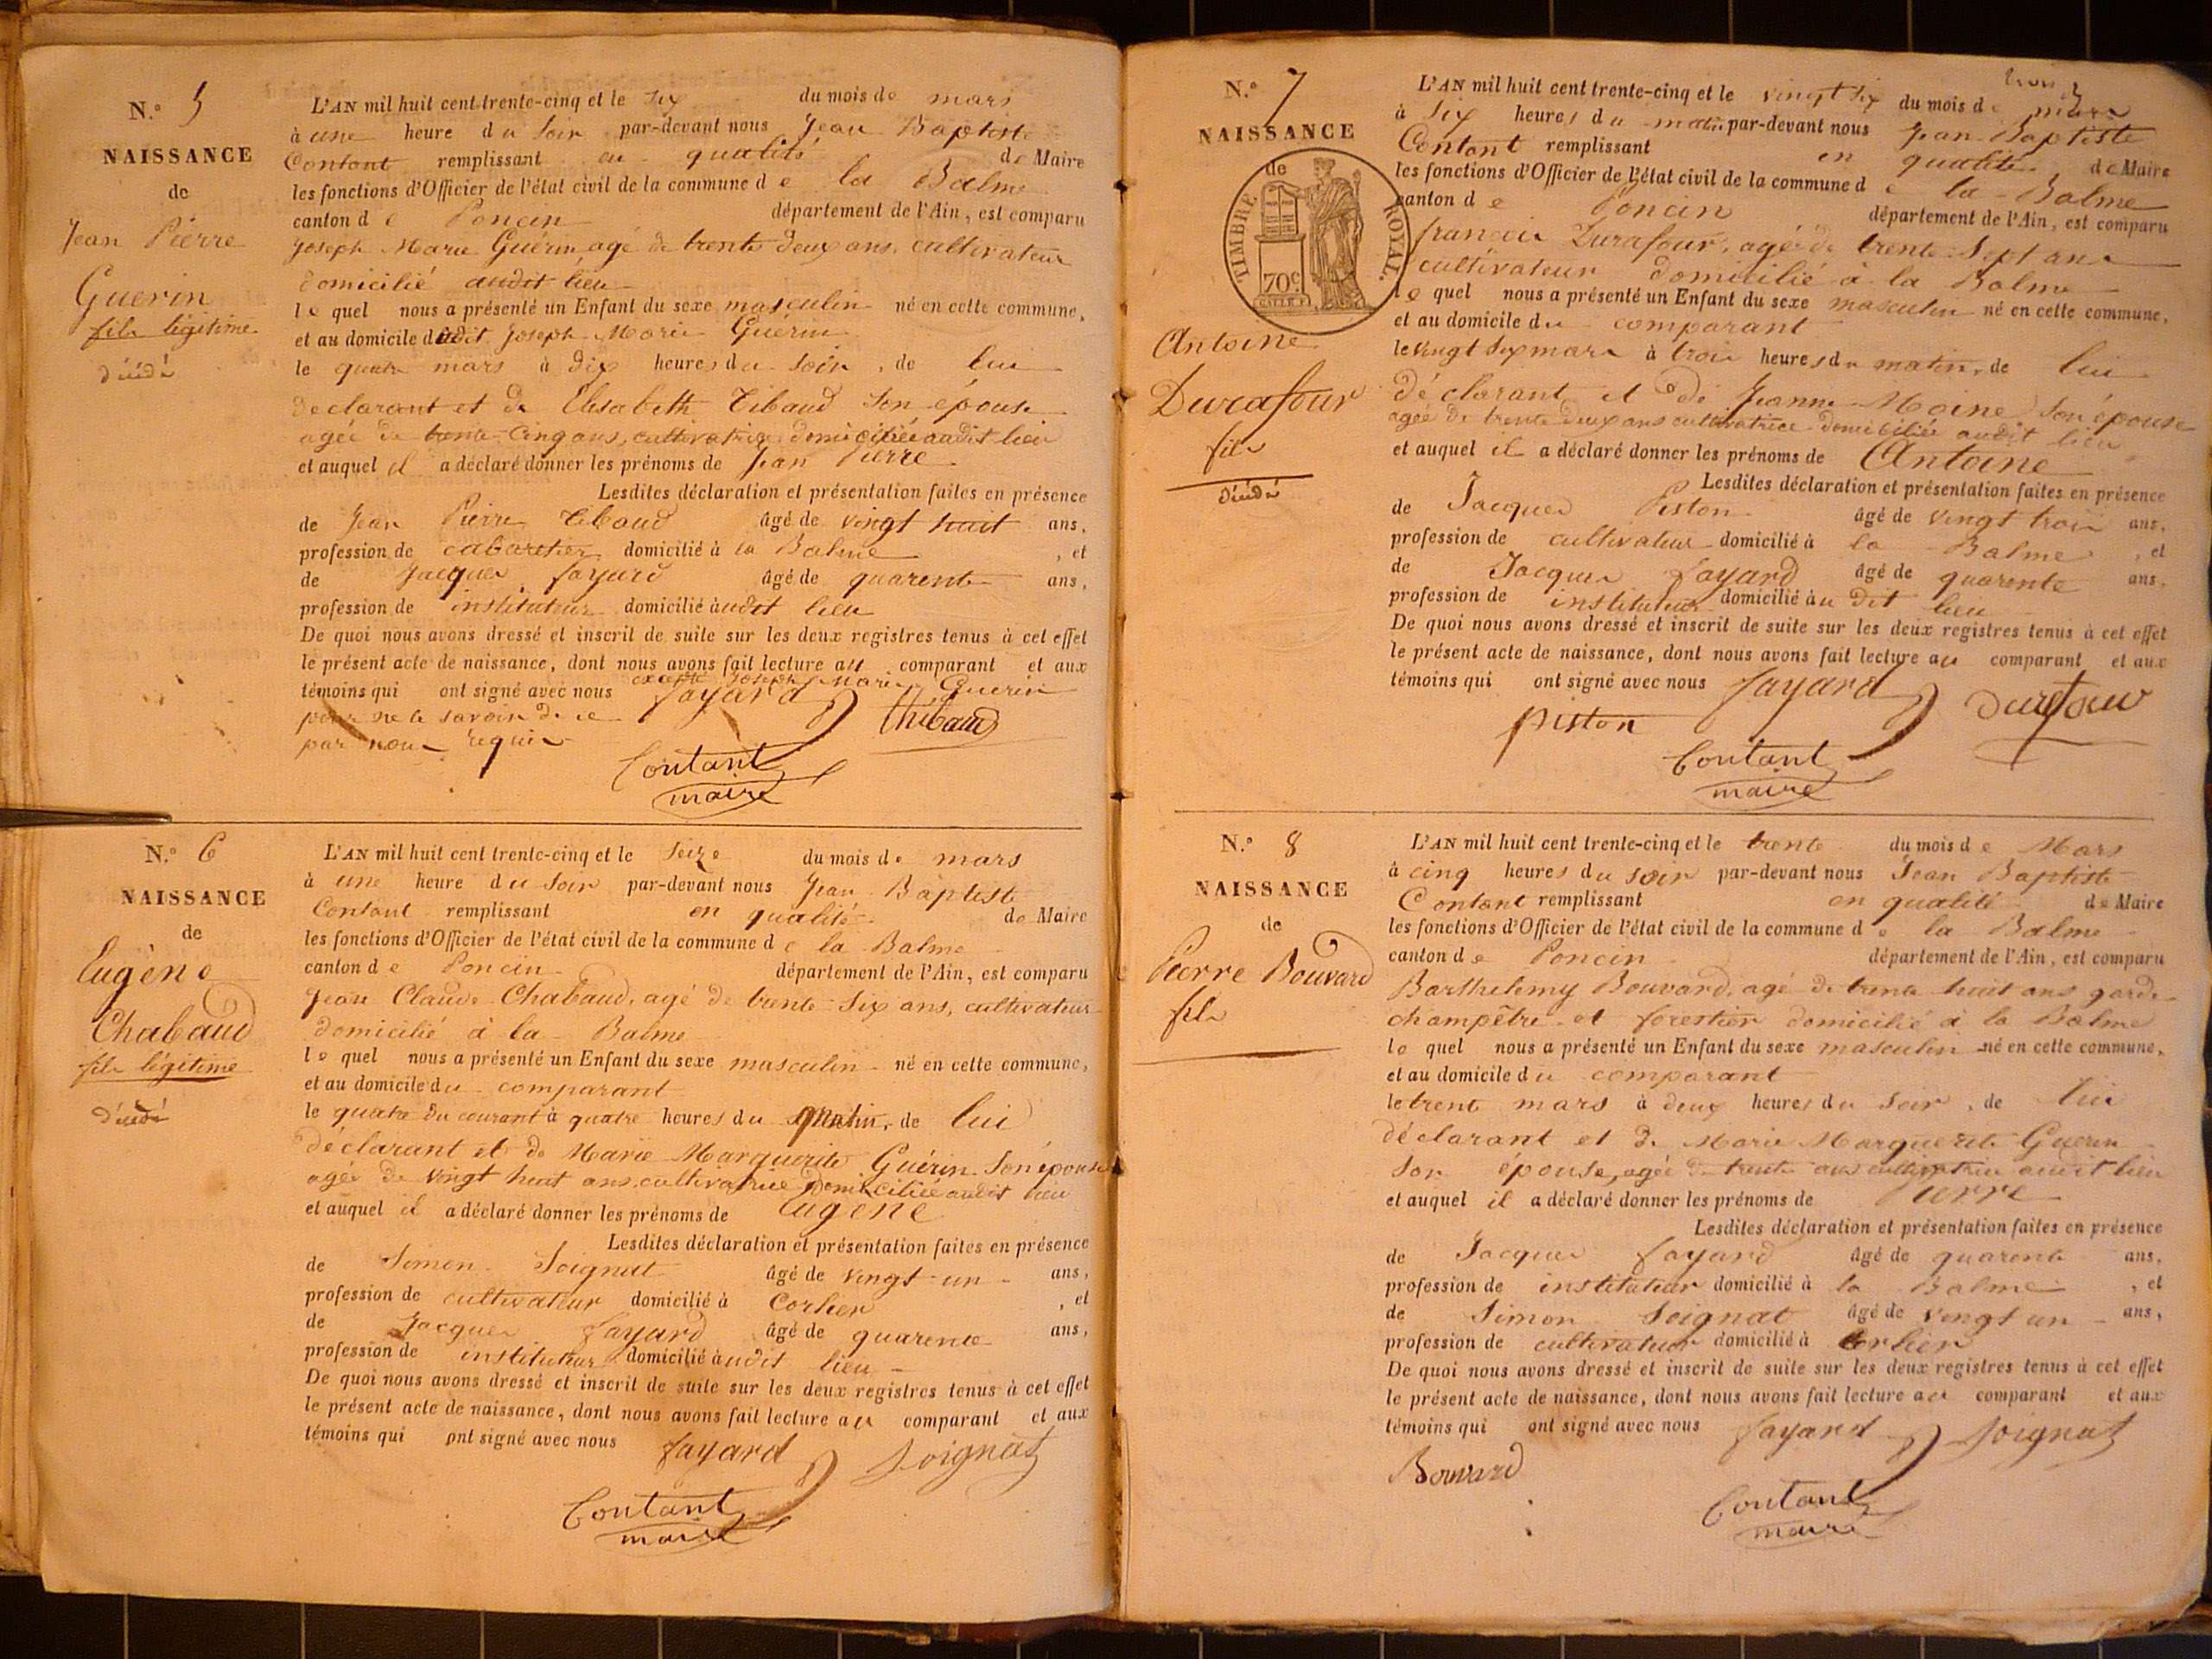 N.° 5
NAISSANCE
de
Jean Pierre
Guerin
fils légitime
décédé
L'AN mil huit cent trente-cinq et le six du mois de mars
à une heure du soir par-devant nous Jean Baptiste
Contant remplissant en qualité de Maire
les fonctions d'Officier de l'état civil de la commune de la Balme
canton de Poncin département de l'Ain, est comparu
Joseph Marie Guérin, agé de trente deux ans, cultivateur
domicilié audit lieu
lequel nous a présenté un Enfant du sexe masculin né en cette commune,
et au domicile dudit Joseph Marie Guerin
le quatre mars à dix heures du soir, de lui
declarant et de Elisabeth Tibaud son épouse
agée de trente-cinq ans, cultivatrice domiciliée audit lieu
et auquel il a déclaré donner les prénoms de Jean Pierre
Lesdites déclaration et présentation faites en présence
de Jean Pierre Tibaud âgé de vingt huit ans,
profession de cabaretier domicilié à la Balme, et
de Jacques fayard âgé de quarente ans,
profession de instituteur domicilié audit lieu
De quoi nous avons dressé et inscrit de suite sur les deux registres tenus à cet effet
le présent acte de naissance, dont nous avons fait lecture au comparant et aux
témoins qui ont signé avec nous excepté Joseph Marie Guerin
pour ne le savoir de ce fayard thibaud
par nous requis
Contant
maire
N.° 6
NAISSANCE
de
Eugène
Chabaud
fils légitime
décédé
L'AN mil huit cent trente-cinq et le seize du mois de mars
à une heure du soir par-devant nous Jean Baptiste
Contant remplissant en qualité de Maire
les fonctions d'Officier de l'état civil de la commune de la Balme
canton de Poncin département de l'Ain, est comparu
Jean Claude Chabaud, agé de trente-six ans, cultivateur
domicilié à la Balme
lequel nous a présenté un Enfant du sexe masculin né en cette commune,
et au domicile du comparant
le quatre du courant à quatre heures du matin, de lui
déclarant et de Marie Marguerite Guérin son épouse
agée de vingt huit ans, cultivatrice domiciliée audit lieu
et auquel il a déclaré donner les prénoms de Eugene
Lesdites déclaration et présentation faites en présence
de Simon Soignat âgé de vingt-un ans,
profession de cultivateur domicilié à Corlier, et
de Jacques fayard âgé de quarente ans,
profession de instituteur domicilié audit lieu
De quoi nous avons dressé et inscrit de suite sur les deux registres tenus à cet effet
le présent acte de naissance, dont nous avons fait lecture au comparant et aux
témoins qui ont signé avec nous fayard Soignat
Contant
maire
N.° 7
NAISSANCE
de
TIMBRE ROYAL.
70c
Antoine
Durafour
fils
décédé
trois
L'AN mil huit cent trente-cinq et le vingt six du mois de mars
à six heures du matin par-devant nous Jean Baptiste
Contant remplissant en qualité de Maire
les fonctions d'Officier de l'état civil de la commune de la Balme
canton de Poncin département de l'Ain, est comparu
françois Durafour, agé de trente-sept ans
cultivateur domicilié à la Balme
lequel nous a présenté un Enfant du sexe masculin né en cette commune,
et au domicile du comparant
le vingt six mars à trois heures du matin, de lui
déclarant et de Jeanne Moine son épouse
agée de trente deux ans cultivatrice domiciliée audit lieu
et auquel il a déclaré donner les prénoms de Antoine
Lesdites déclaration et présentation faites en présence
de Jacques Piston âgé de vingt trois ans,
profession de cultivateur domicilié à la Balme, et
de Jacques fayard âgé de quarente ans,
profession de instituteur domicilié au dit lieu
De quoi nous avons dressé et inscrit de suite sur les deux registres tenus à cet effet
le présent acte de naissance, dont nous avons fait lecture au comparant et aux
témoins qui ont signé avec nous fayard
piston
Contant
maire
N.° 8
NAISSANCE
de
Pierre Bouvard
fils
L'AN mil huit cent trente-cinq et le trente du mois de Mars
à cinq heures du soir par-devant nous Jean Baptiste
Contant remplissant en qualité de Maire
les fonctions d'Officier de l'état civil de la commune de la Balme
canton de Poncin département de l'Ain, est comparu
Barthelemy Bouvard, agé de trente huit ans garde
champêtre et forestier domicilié à la Balme
lequel nous a présenté un Enfant du sexe masculin né en cette commune,
et au domicile du comparant
le trente mars à deux heures du soir, de lui
déclarant et de Marie Marguerite Guerin
son épouse, agée de trente ans cultivatrice audit lieu
et auquel il a déclaré donner les prénoms de Pierre
Lesdites déclaration et présentation faites en présence
de Jacques fayard âgé de quarente ans,
profession de instituteur domicilié à la Balme, et
de Simon Soignat âgé de vingt un ans,
profession de cultivateur domicilié à Corlier
De quoi nous avons dressé et inscrit de suite sur les deux registres tenus à cet effet
le présent acte de naissance, dont nous avons fait lecture au comparant et aux
témoins qui ont signé avec nous fayard Soignat
Bouvard
Contant
maire